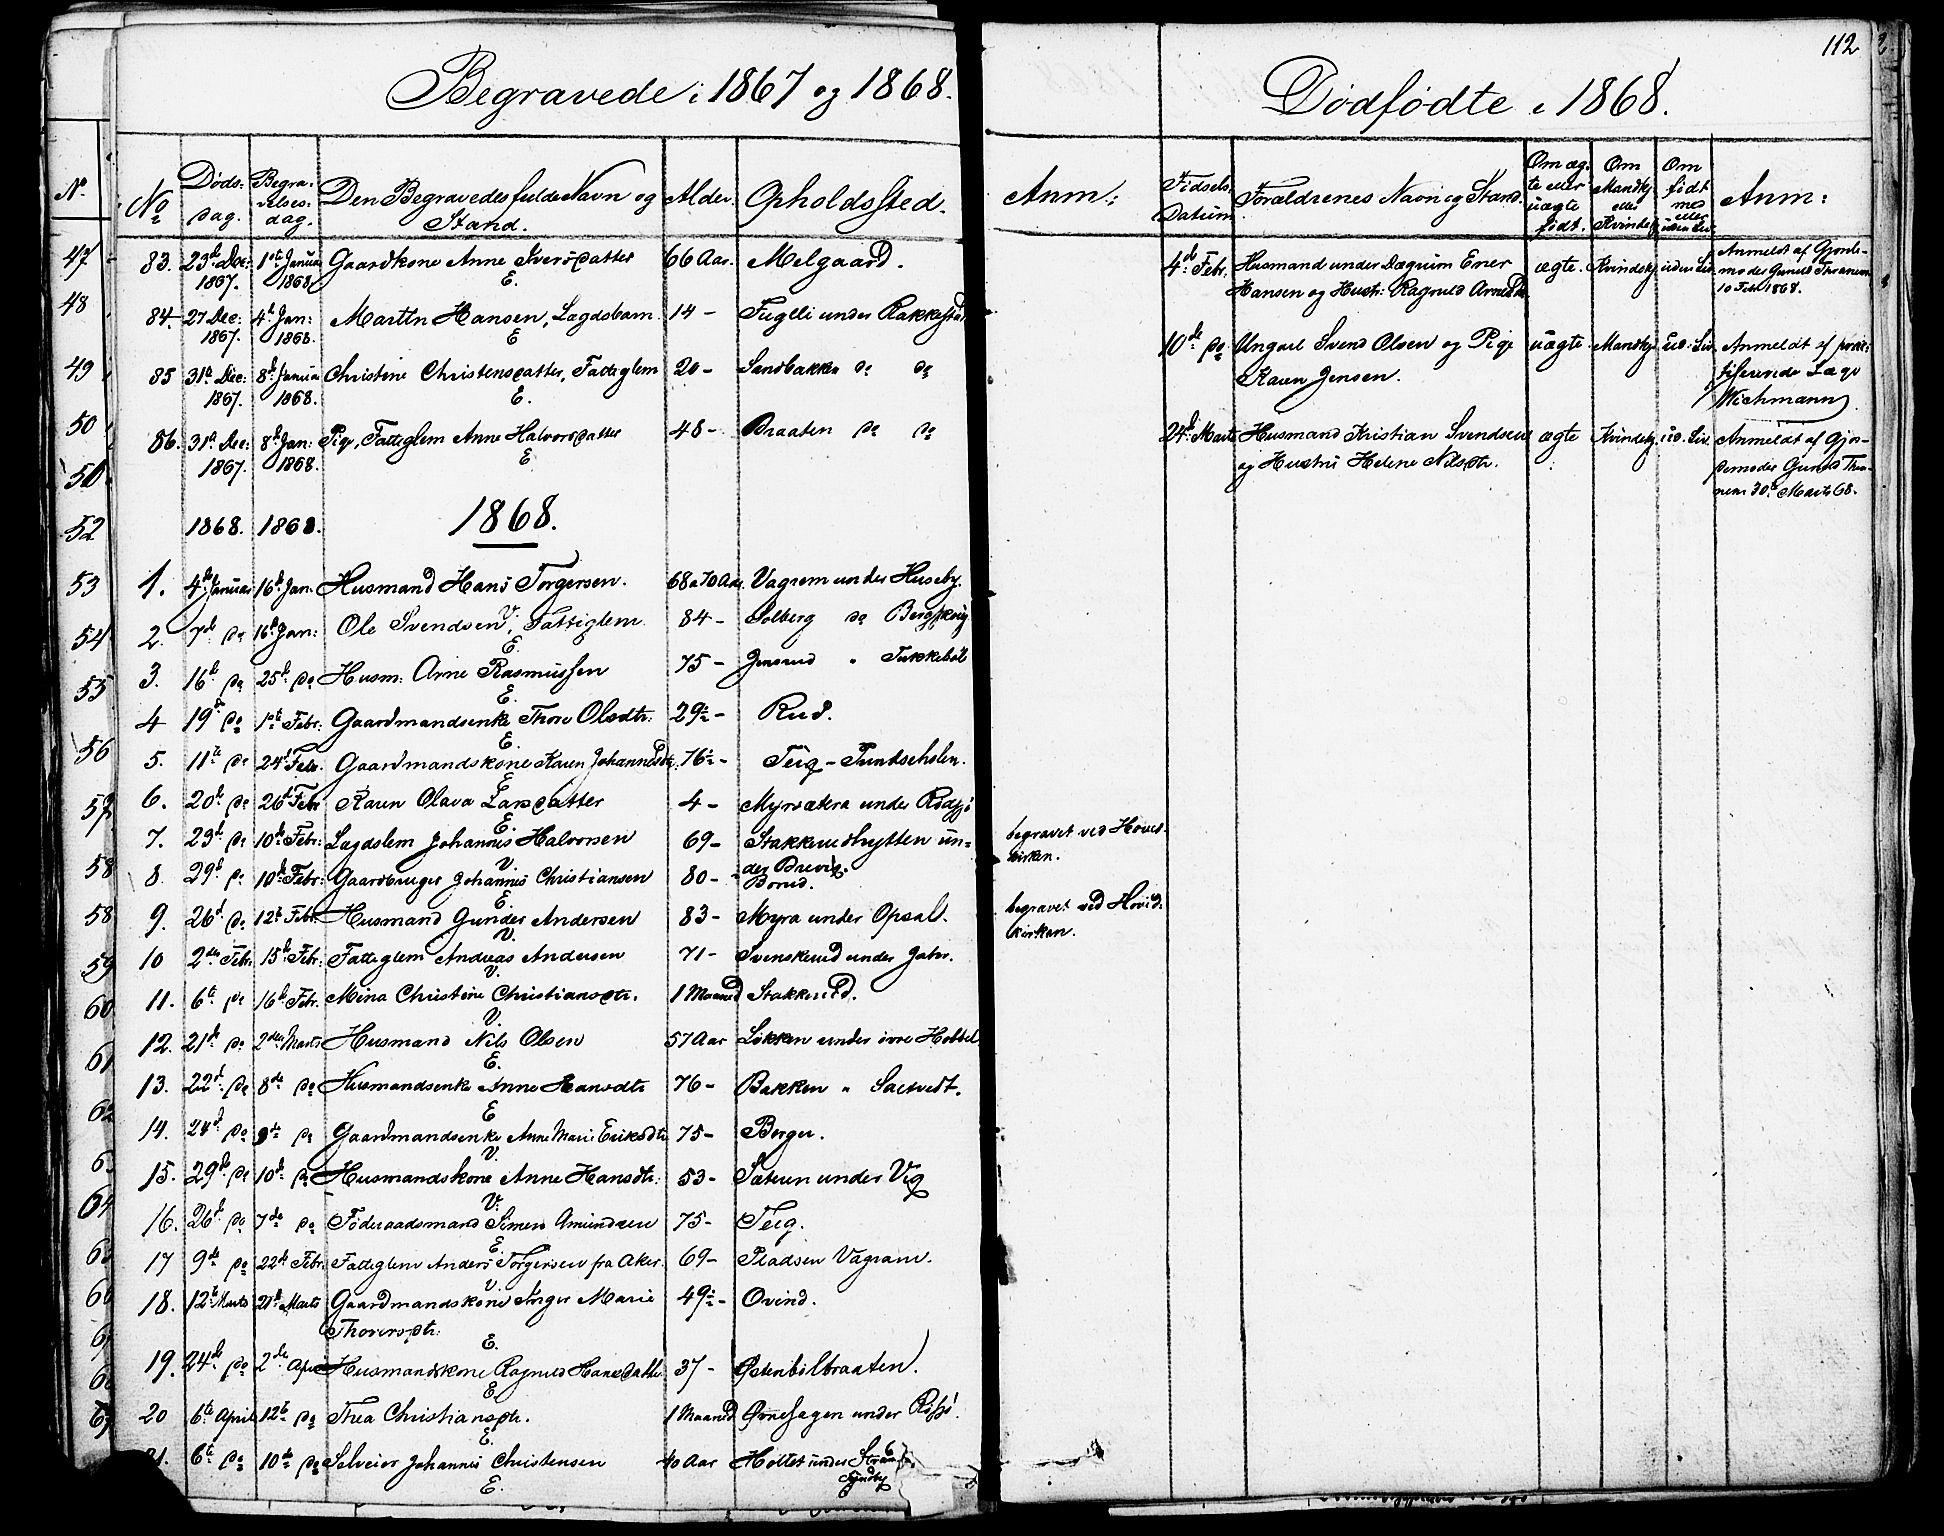 112
Begravede i 1867 og 1868.
No
Døds-dag. Begravelses-dag. Den Begravedes fulde Navn og Stand. Alder. Opholdssted. Anm:
83. 23de Dec: 1867. 1ste Januar 1868. Gaardkone Anne Iversdatter 66 Aar. Melgaard.
E.
84. 27 Dec: 1867. 4de Jan: 1868. Martin Hansen, Lægdsbarn 14 - under Rakkestad
E
85 31te Dec: 1867. 8de Januar 1868. Christine Christensdatter, Fattiglem 20 - Sandbakken do do
E.
86. 31te Dec: 1867. 8de Jan: 1868. Pige, Fattiglem Anne Halvorsdatter 48 - Braaten do do
E
1868. 1868. 1868.
1. 4de Januar 16de Jan: Husmand Hans Torgersen. 68 a 70 Aar. Vagrem under Huseby.
V.
2. 7de do 16de Jan: Ole Svendsen, Fattiglem. 84 - Solberg do
E.
3. 16de do 25de do Husm: Arne Rasmussen 75 -
E.
4 19de do 1ste Febr: Gaardmandsenke Thore Olsdtr: 29 - Rud.
E.
5. 11te do 24de Febr. Gaardmandskone Karen Johannesdtr. 76 -
E.
6. 20de do 26de Febr Karen Olava Larsdatter 4 - under
E.
7. 23de do 10de Febr: Lægdslem Johannes Halvorsen 69 - Stakkerudhytten under Brevig. begravet ved Hovedkirken.
V.
8. 29de do 10de Febr: Gaardbruger Johannes Christiansen 80 - Borud.
E.
9. 26de do 12te Febr. Husmand Gunder Andersen 83 - Myra under Opsal. begravet ved Hovedkirken.
V.
10 2den Febr. 15de Febr: Fattiglem Andreas Andersen 71 - Svenskerud under
V.
11. 6te do 16de Febr. Mina Christine Christiansdtr. 1 Maaned Stakkerud.
V.
12. 21de do 2den Marts Husmand Nils Olsen 57 Aar Løkken under øvre Hobbel
E.
13. 22de do 8de do Husmandsenke Anne Hansdtr 76 - Bakken "
E
14. 24de do 9de do Gaardmandsenke Anne Marie Eriksdtr 75 - Berger.
V.
15. 29de do 10de do Husmandskone Anne Hansdtr: 53 - Sæteren under Vig
V.
16. 26de do 7de do Føderaadsmand Simen Amundsen 75 - Teig.
E.
17 9de do 22de Febr. Fattiglem Anders Torgersen fra Aker. 69 - Pladsen Vagram.
V.
18. 12te Marts 21de Marts Gaardmandskone Inger Marie Thorersdtr: 49 - Ovind.
E.
19. 24de do 2den April Husmandskone Ragnild Hansdatter 37 - Østenbølbraaten.
E.
20 6te April 12te do Thea Christiansdtr. 1 Maaned under
E.
21. 6te do 10de do Selveier Johannes Christensen 40 Aar under
E.
Dødfødte i 1868.
Fødsels Datum Forældrenes Navn og Stand. Om ægte eller uægte født. Om Mandkj. eller Kvindekj. Om født med eller uden Liv. Anm:
4de Febr. Husmand under Dægrum Ener Hansen og Hustr: Ragnild Arnesdtr. ægte. Kvindekj. uden Liv. Anmeldt af Gjordemoder Gunild Thranem 10 Febr 1868.
10de do Ungkarl Svend Olsen og Pige Karen Jensen. uægte Mandkj. ud. Liv. Anmeldt af praktiserende Læge Wichmann
24de Marts Husmand Kristian Svendsen og Hustru Helene Nilsdtr. ægte Kvindekj. ud. Liv. Anmeldt af Gjordemoder Gunild Thranem 30te Marts 68.
No
47
48
49
50
50
52
53
54
55
56
57
58
58
59
60
61
62
64